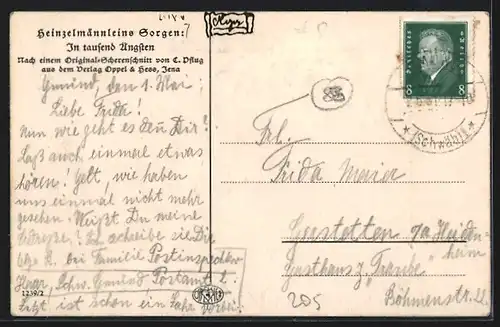 Heinzelmännleins Sorgen:
In tausend Ängsten
Nach einem Original-Scherenschnitt von C. Pflug
aus dem Verlag Oppel & Hess, Jena
Gmünd, den 1. Mai.
Liebe Frida!
Nun wie geht es denn Dir?
Laß auch einmal etwas
hören! Gelt, wir haben
uns einmal nicht mehr
gesehen. Weißt Du meine
Adresse? Ich schreibe sie Dir
bei Familie Postinspektor
Schw. Gmünd Postamt
Jetzt ist schon ein Jahr vorbei.
1239/2
Deutsches Reich
8 8
Frl.
Frida Maier
Gerstetten O/A Heiden-
heim
Gasthaus z. "Traube"
Böhmenstr. 22
205